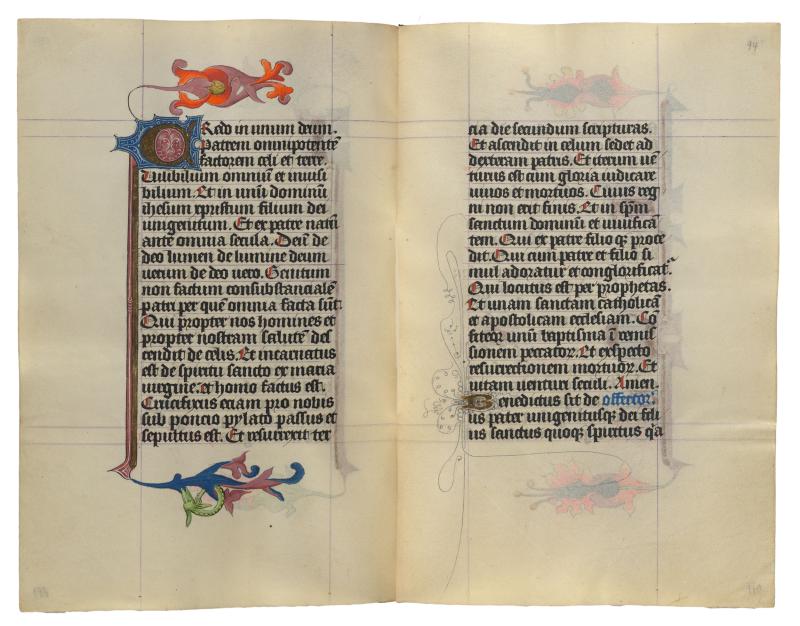 CRedo in unum deum.
Patrem omnipotentē
factorem celi et terre.
Uisibilium omniū et inuisi
bilium. Et in unū dominū
ihesum xpristum filium dei
unigenitum. Et ex patre natū
ante omnia secula. Deū de
deo lumen de lumine deum
uerum de deo uero. Genitum
non factum consubstancialē
patri per quē omnia facta sūt.
Qui propter nos homines et
propter nostram salutē des
cendit de celis. Et incarnatus
est de spiritu sancto ex maria
uirgine. et homo factus est.
Crucifixus eciam pro nobis
sub poncio pylato passus et
sepultus est. Et resurrexit ter
94
cia die secundum scripturas.
Et ascendit in celum sedet ad
dexteram patris. Et iterum uē
turus est cum gloria iudicare
uiuos et mortuos. Cuius reg
ni non erit finis. Et in spm̄
sanctum dominū et uiuificā
tem. Qui ex patre filio qꝫ proce
dit. Qui cum patre et filio si
mul adoratur et conglorificat᷑.
Qui locutus est per prophetas.
Et unam sanctam catholicā
et apostolicam ecclesiam. Co
fiteor unū baptisma ī remis
sionem peccatoꝝ. Et exspecto
resurrectionem mortuoꝝ. Et
uitam uenturi seculi. Amen.
Benedictus sit de offertoꝝ.
us pater unigenitusqꝫ dei fili
us sanctus quoqꝫ spiritus q̄a